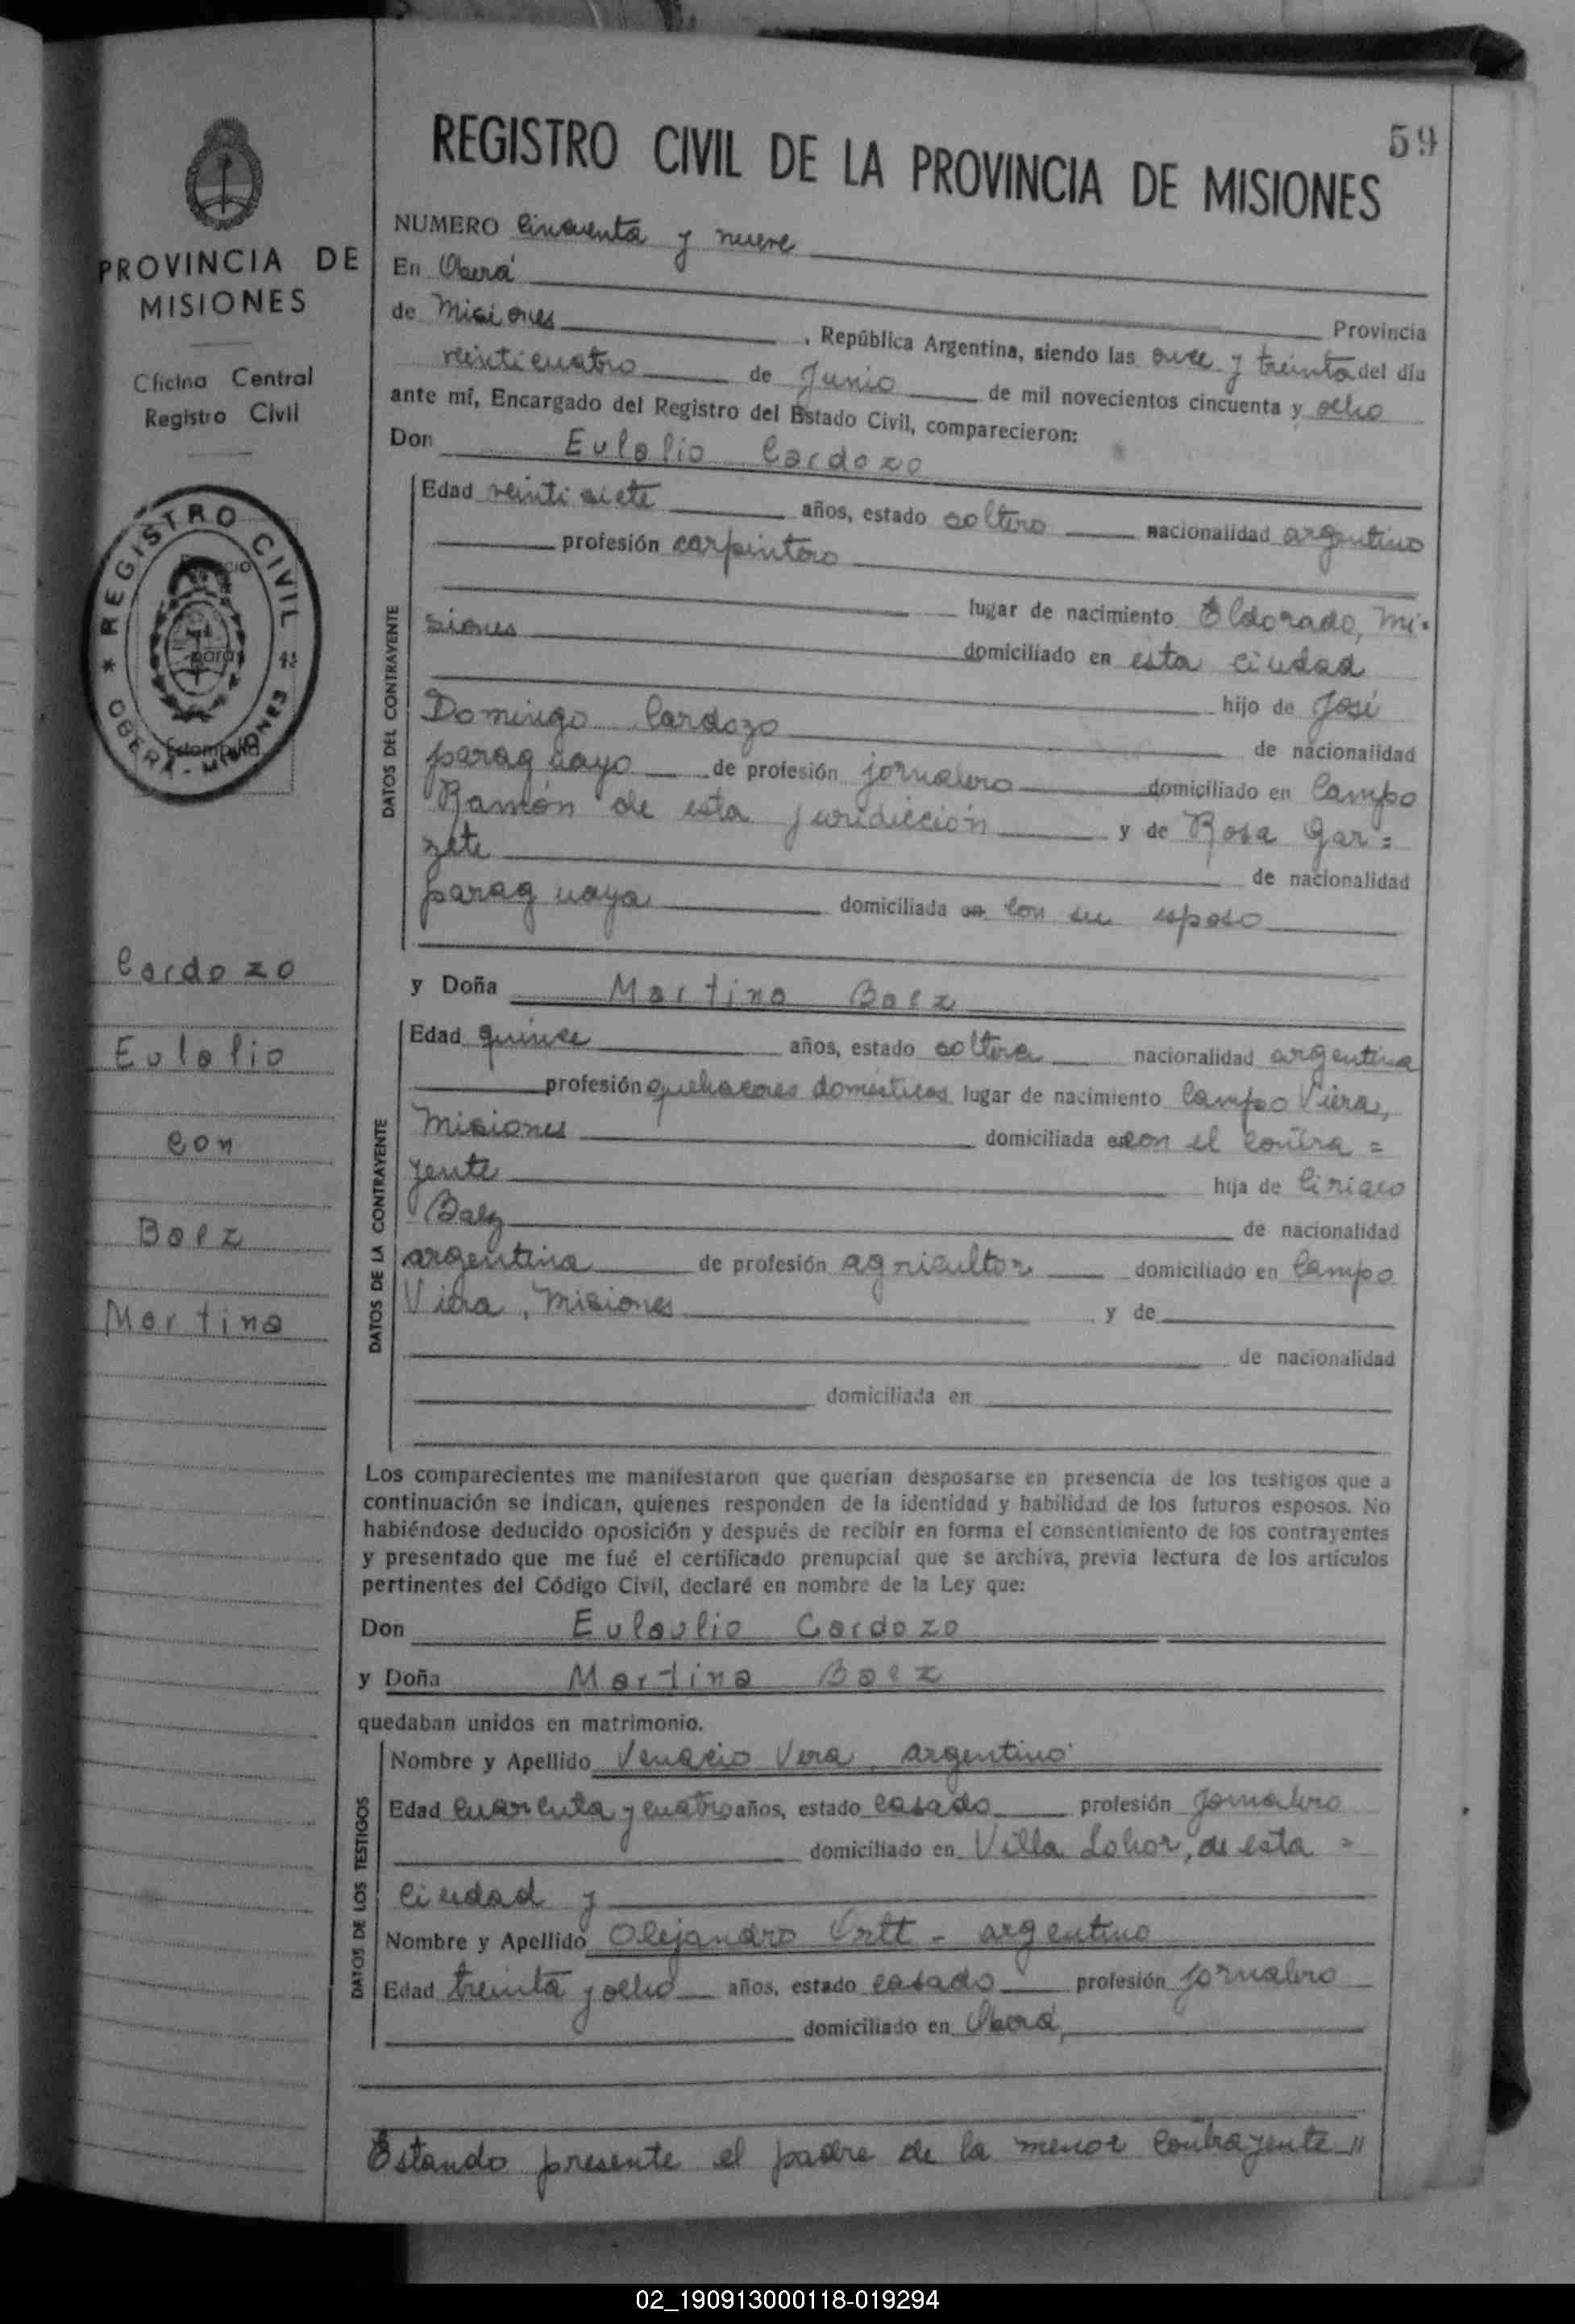 59
REGISTRO CIVIL DE LA PROVINCIA DE MISIONES
PROVINCIA DE
MISIONES
Oficina Central
Registro Civil
REGISTRO CIVIL
Espacio
para
Estampilla
OBERA - MISIONES
Cardozo
Eulalio
con
Baez
Martina
NUMERO Cincuenta y nueve
En Oberá
Provincia
de Misiones , República Argentina, siendo las once y treinta del día
veinticuatro de Junio de mil novecientos cincuenta y ocho
ante mí, Encargado del Registro del Estado Civil, comparecieron:
Don Eulalio Cardozo
DATOS DEL CONTRAYENTE
Edad veinti siete años, estado soltero nacionalidad argentino
profesión carpintero
lugar de nacimiento Eldorado, Mi-
siones domiciliado en esta ciudad
hijo de José
Domingo Cardozo de nacionalidad
paraguayo de profesión jornalero domiciliado en Campo
Ramón de esta juridicción y de Rosa Gar=
zete de nacionalidad
paraguaya domiciliada en con su esposo
y Doña Martina Baez
DATOS DE LA CONTRAYENTE
Edad quince años, estado soltera nacionalidad argentina
profesión quehaceres domésticos lugar de nacimiento Campo Viera,
Misiones domiciliada en con el contra=
yente hija de Ciriaco
Baez de nacionalidad
argentina de profesión agricultor domiciliado en Campo
Viera, Misiones y de
de nacionalidad
domiciliada en
Los comparecientes me manifestaron que querían desposarse en presencia de los testigos que a
continuación se indican, quienes responden de la identidad y habilidad de los futuros esposos. No
habiéndose deducido oposición y después de recibir en forma el consentimiento de los contrayentes
y presentado que me fué el certificado prenupcial que se archiva, previa lectura de los artículos
pertinentes del Código Civil, declaré en nombre de la Ley que:
Don Eulaulio Cardozo
y Doña Martina Baez
quedaban unidos en matrimonio.
DATOS DE LOS TESTIGOS
Nombre y Apellido Venacio Vera, argentino
Edad cuarenta y cuatro años, estado casado profesión jornalero
domiciliado en Villa Lohor, de esta =
ciudad y
Nombre y Apellido Alejandro - argentino
Edad treinta y ocho años, estado casado profesión jornalero
domiciliado en Oberá,
Estando presente el padre de la menor contrayente //
02_190913000118-019294